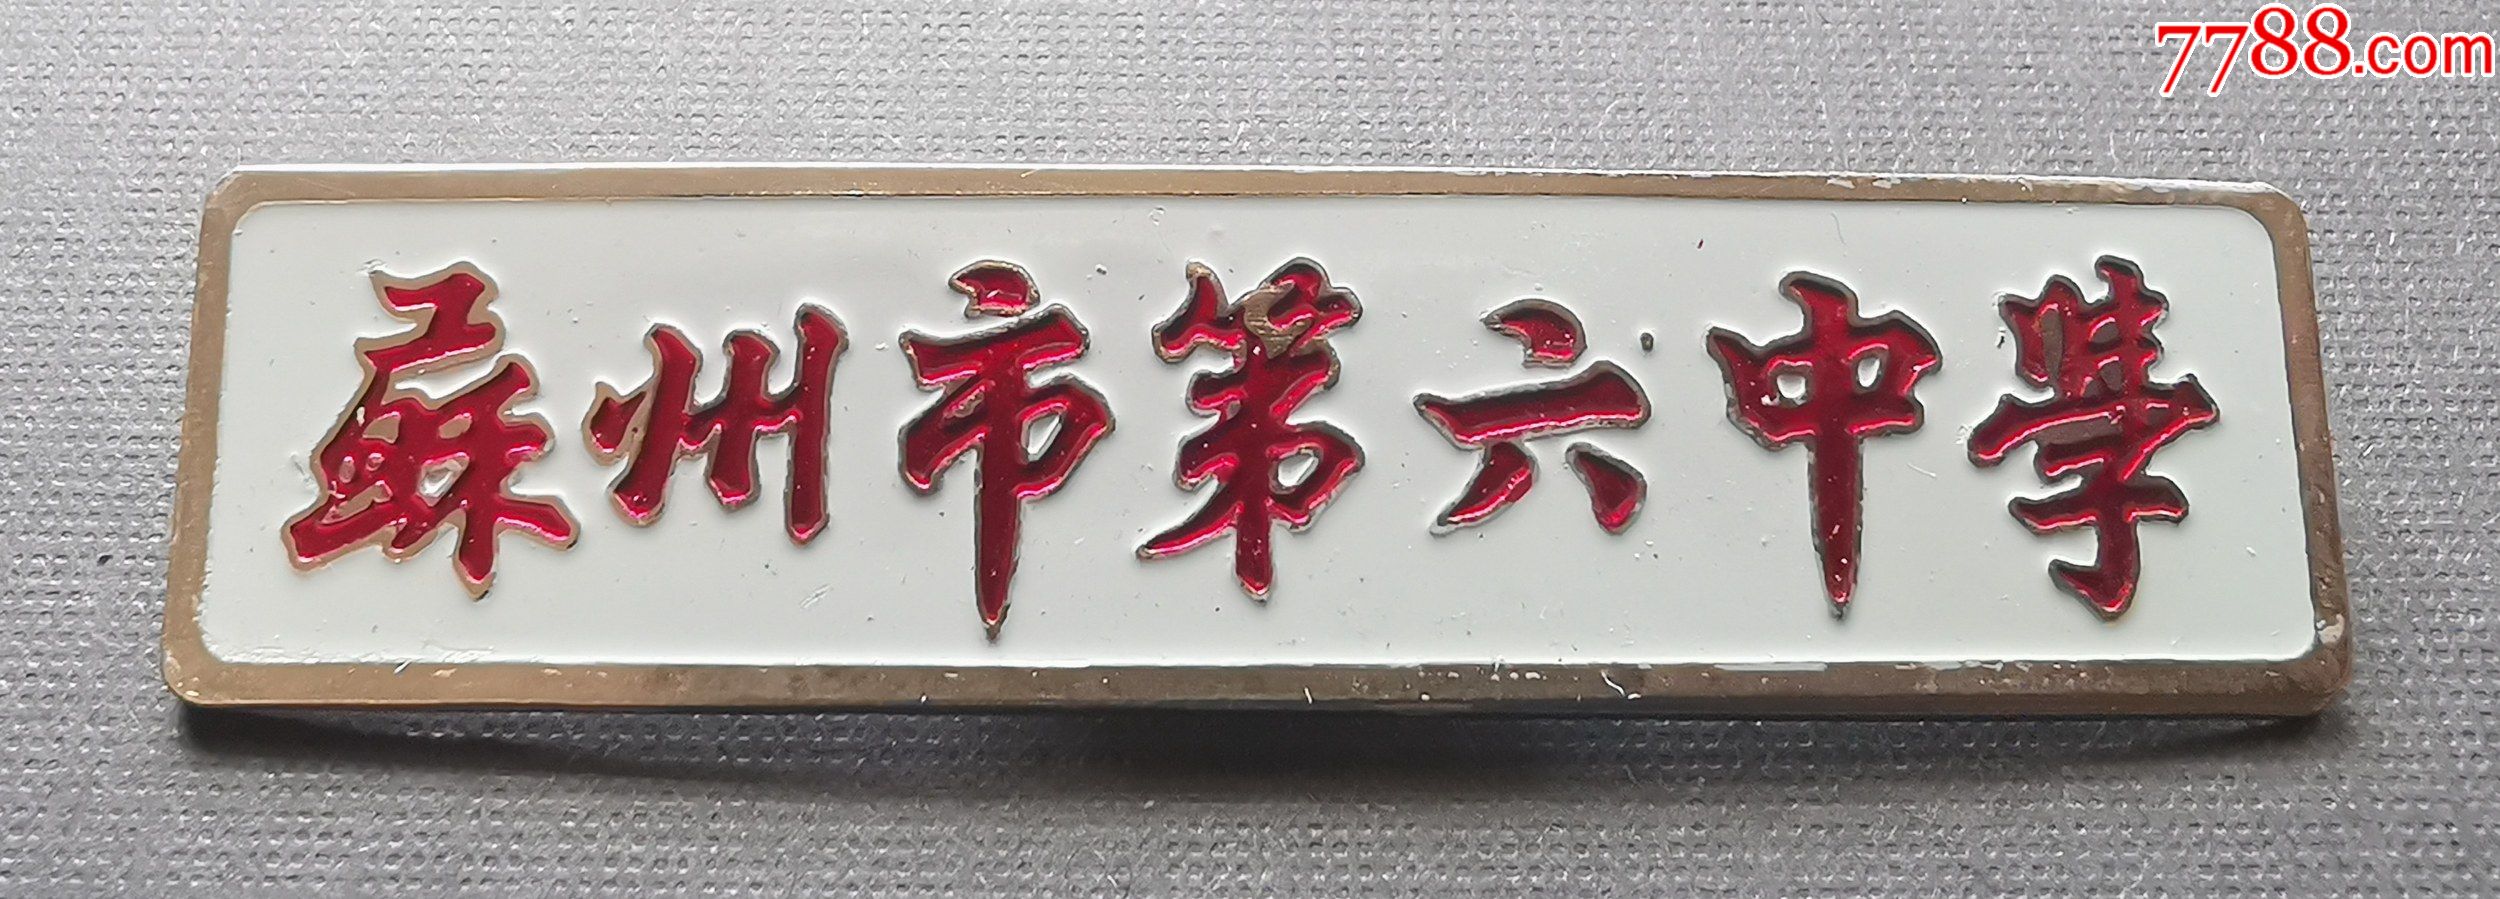 7788.com
蘇州市第六中學